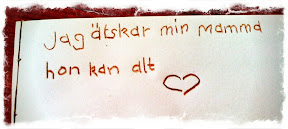 Jag ätskar min mamma
hon kan alt